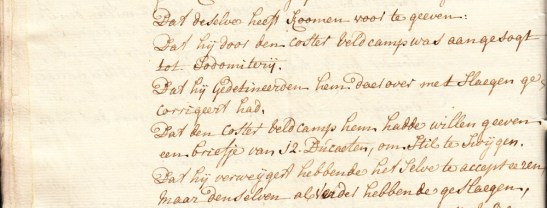 Dat deselve heeft koomen voor te geeven:
Dat hij door den coster veldcamp was aangesogt
tot Sodomitrij.
Dat hij Gedetineerden hem daer over met Slaegen ge
corrigeert had.
Dat den coster veldcamp hem hadde willen geeven
een briefje van 12. Ducaeten, om Stil te Swijgen.
Dat hij verweijgert hebbende het Selve te accepteeren
maar denselven als verder hebbende geslaegen,